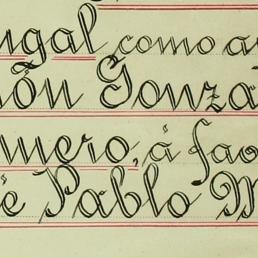 ugal como a
ón Gonza
mero, á fao
é Pablo M